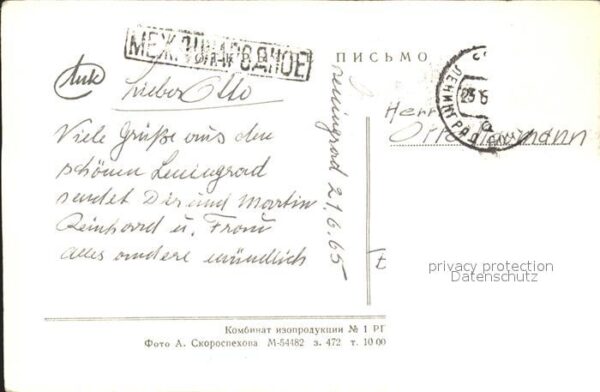 МЕЖДУНАРОДНОЕ
ПИСЬМО
Lieber Otto
Viele Grüße aus den
schönen Leningrad
sendet Dir und Martin
Reinhard u. Frau
alles andere mündlich
Leningrad 21.6.65
ЛЕНИНГРАД
Herrn
Otto
privacy protection
Datenschutz
Комбинат изопродукции № 1 РГ
Фото А. Скороспехова М-54482 з. 472 т. 10 00